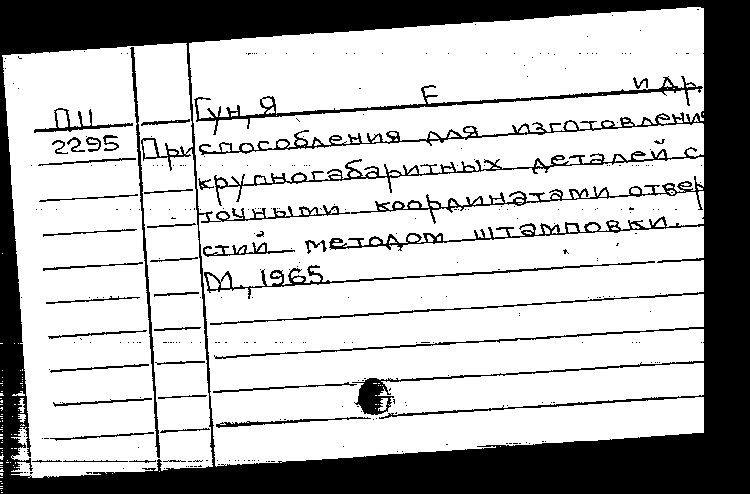 ПII Гун, Я Е и др.
2295 Приспособления для изготовлени
крупногабаритных деталей с
точными координатами отвер
стий методом штамповки.
М., 1965.